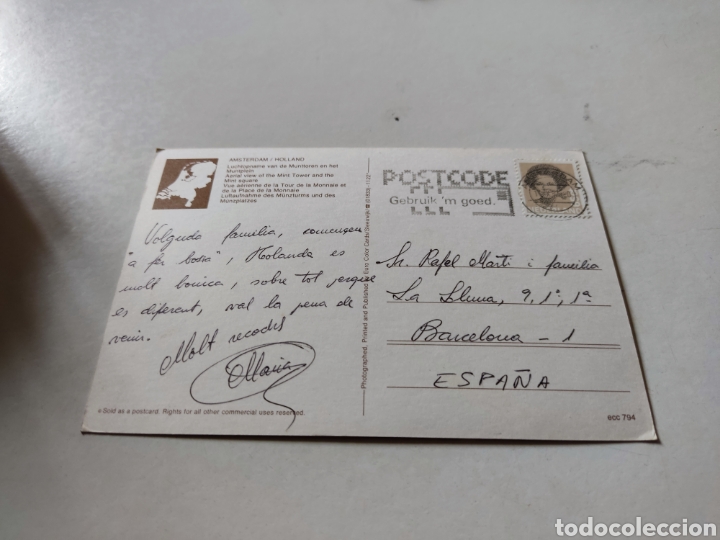 AMSTERDAM / HOLLAND
Luchtopname van de Munttoren en het
Muntplein
Aerial view of the Mint Tower and the
Mint square
Vue aérienne de la Tour de la Monnaie et
de la Place de la Monnaie
Luftaufnahme des Münzturms und des
Münzplatzes
Volguda família,
"a fer bossa", Holanda es
molt bonica, sobre tot perque
es diferent, val la pena de
venir.
Molt records
Maria
Sold as a postcard. Rights for all other commercial uses reserved.
Photographed, Printed and Published by Euro Color Cards
POSTCODE
Gebruik 'm goed.
Sr. Rafel Martí i família
La Lluna, 9, 1º, 1ª
Barcelona - 1
ESPAÑA
ecc 794
todocoleccion